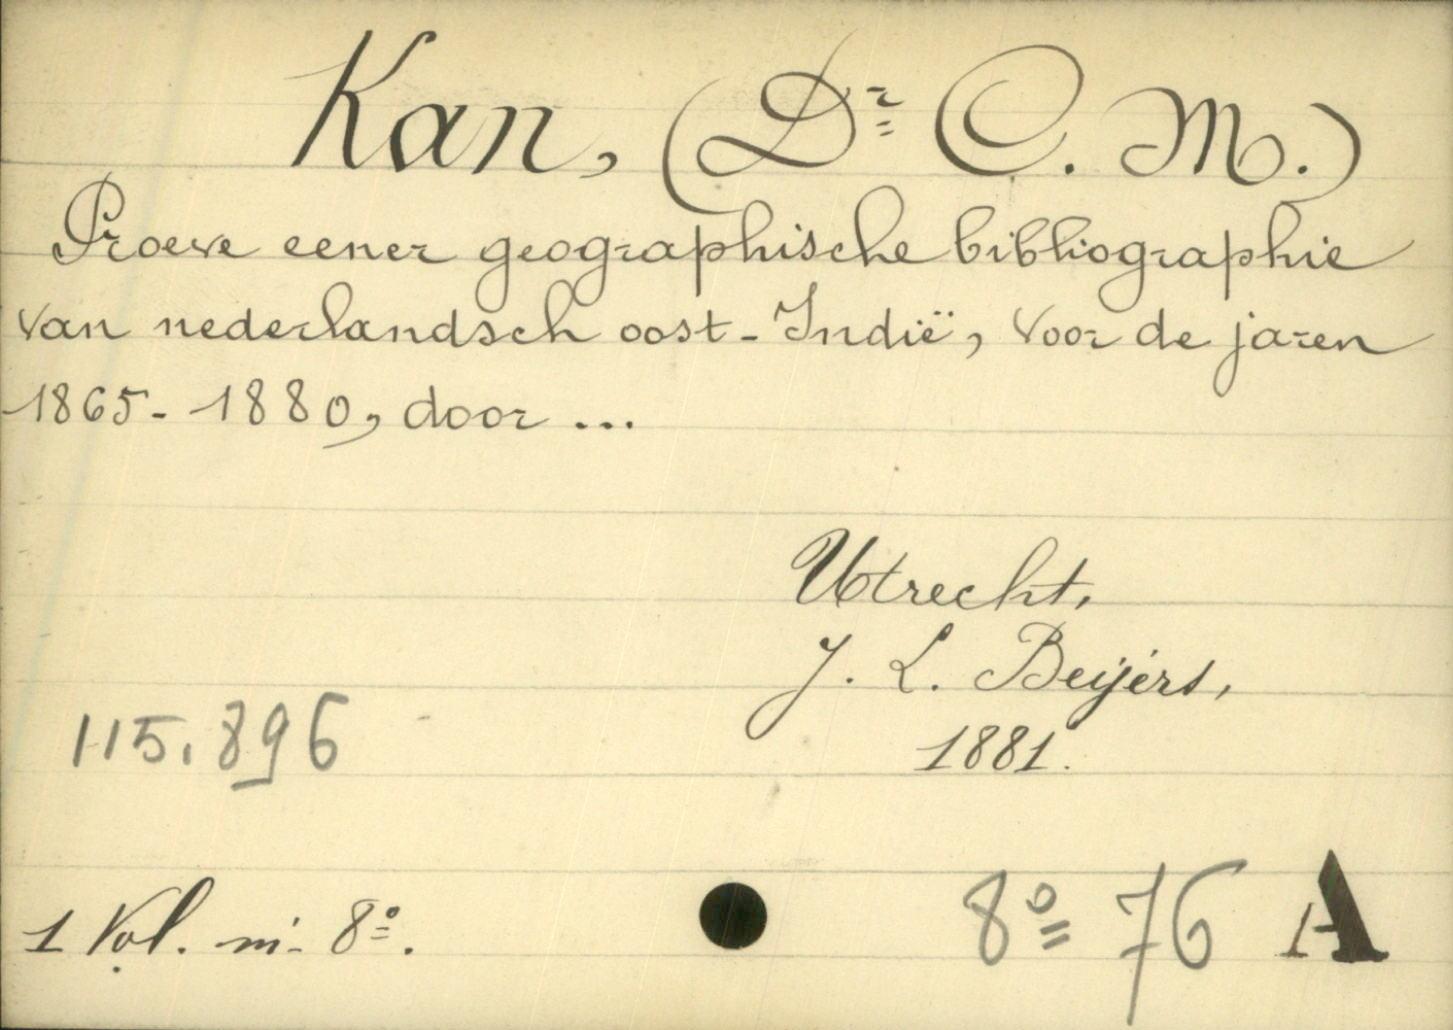 Kan, (Dr C. M.)
Proeve eener geographische bibliographie
van nederlandsch oost-Indië, voor de jaren
1865-1880, door ...
Utrecht,
J. L. Beijers,
1881.
115.896
1 Vol. in-8º.
8º 76 A